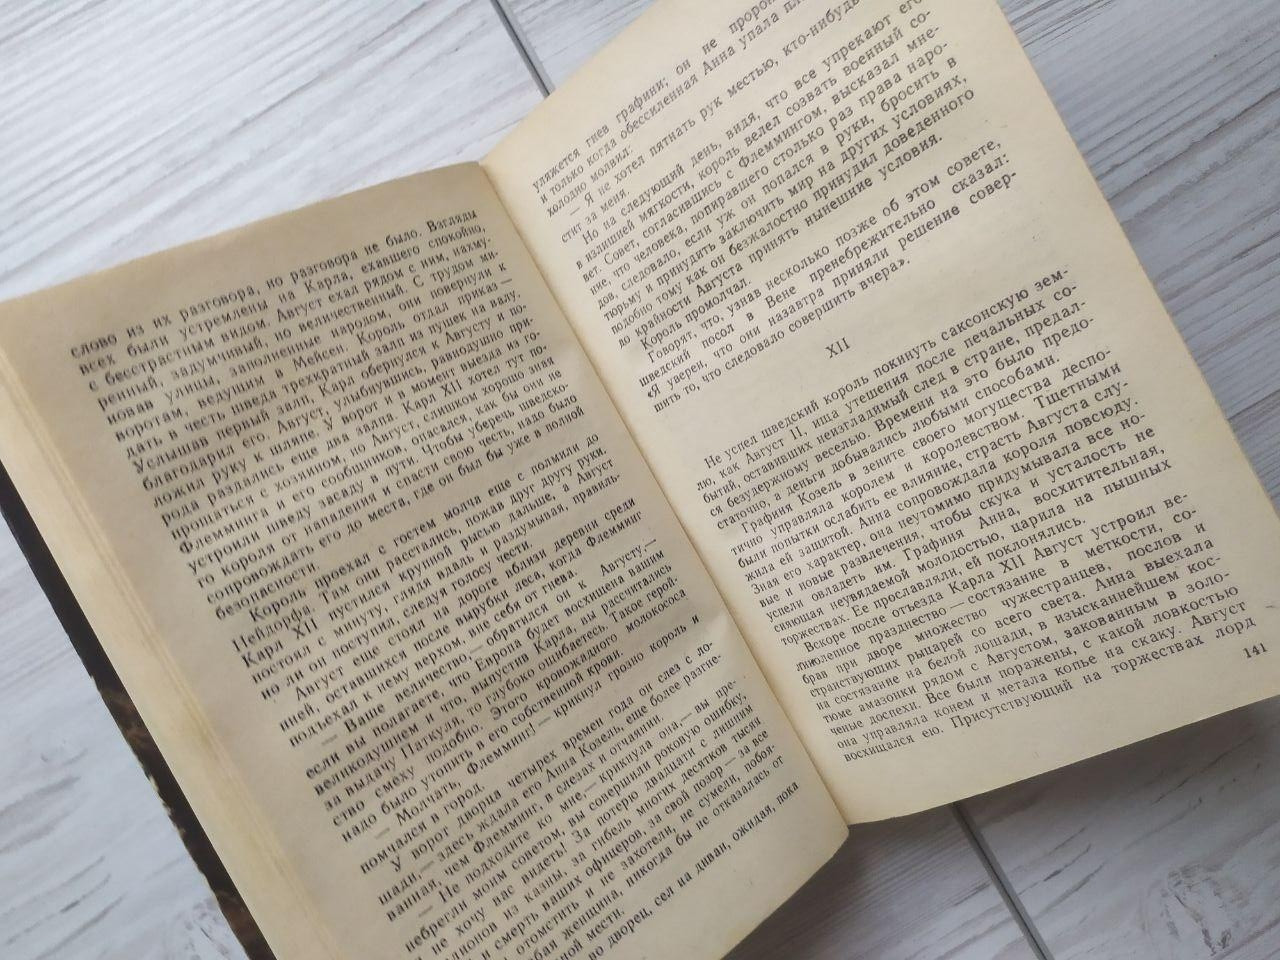 слово из их разговора, но разговора не было. Взгляды
всех были устремлены на Карла, ехавшего спокойно,
с бесстрастным видом. Август ехал рядом с ним, нахму-
ренный, задумчивый, но величественный. С трудом ми-
новав улицы, заполненные народом, они повернули к
воротам, ведущим в Мейсен. Король отдал приказ —
дать в честь шведа трехкратный залп из пушек на валу.
Услышав первый залп, Карл обернулся к Августу и по-
благодарил его, Август, улыбнувшись, равнодушно при-
ложил руку к шляпе. У ворот и в момент выезда из го-
рода раздались еще два залпа. Карл XII хотел тут по-
прощаться с хозяином, но Август, слишком хорошо зная
Флемминга и его сообщников, опасался, как бы они не
устроили шведу засаду в пути. Чтобы уберечь шведско-
го короля от нападения и спасти свою честь, надо было
сопровождать его до места, где он был бы уже в полной
безопасности.
Король проехал с гостем молча еще с полмили до
Нейдорфа. Там они расстались, пожав друг другу руки.
Карл XII пустился крупной рысью дальше, а Август
постоял с минуту, глядя вдаль и раздумывая, правиль
но ли он поступил, следуя голосу чести.
Август еще стоял на дороге вблизи деревни среди
пней, оставшихся после вырубки леса, когда Флемминг
подъехал к нему верхом, вне себя от гнева.
— Ваше величество,— обратился он к Августу,—
если вы полагаете, что Европа будет восхищена вашим
великодушием и что, выпустив Карла, вы рассчитались
за выдачу Паткуля, то глубоко ошибаетесь. Такое герой-
ство смеху подобно. Этого кровожадного молокососа
надо было утопить в его собственной крови.
— Молчать, Флемминг!— крикнул грозно король и
помчался в город.
У ворот дворца четырех времен года он слез с ло-
шади,— здесь ждала его Анна Козель, еще более разгне-
ванная, чем Флемминг, в слезах и отчаянии.
— Не подходите ко мне,— крикнула она,— вы пре-
небрегли моим советом, вы совершили роковую ошибку,
я не хочу вас видеть! За потерю двадцати с лишним
лионов из казны, за гибель многих десятков тысяч
и смерть ваших офицеров, за свой позор — за все
отомстить и не захотели, не сумели, побоя-
бая женщина, никогда бы не отказалась от
ной мести.
во дворец, сел на диван, ожидая, пока
уляжется гнев графини; он не
и только когда обессиленная Анна упала
холодно молвил:
— Я не хотел пятнать рук местью, кто-нибудь
стит за меня.
Но на следующий день, видя, что все упрекают его
в излишней мягкости, король велел созвать военный со-
вет. Совет, согласившись с Флеммингом, высказал мне-
ние, что человека, попиравшего столько раз права наро-
дов, следовало, если уж он попался в руки, бросить в
тюрьму и принудить заключить мир на других условиях,
подобно тому как он безжалостно принудил доведенного
до крайности Августа принять нынешние условия.
Король промолчал.
Говорят, что, узнав несколько позже об этом совете,
шведский посол в Вене пренебрежительно сказал:
«Я уверен, что они назавтра приняли решение совер-
шить то, что следовало совершить вчера».
XII
Не успел шведский король покинуть саксонскую зем-
лю, как Август II, ища утешения после печальных со-
бытий, оставивших неизгладимый след в стране, предал-
ся безудержному веселью. Времени на это было предо-
статочно, а деньги добывались любыми способами.
Графиня Козель в зените своего могущества деспо-
тично управляла королем и королевством. Тщетными
были попытки ослабить ее влияние, страсть Августа слу-
жила ей защитой. Анна сопровождала короля повсюду.
Зная его характер, она неутомимо придумывала все но-
вые и новые развлечения, чтобы скука и усталость не
успели овладеть им. Графиня Анна, восхитительная,
сияющая неувядаемой молодостью, царила на пышных
торжествах. Ее прославляли, ей поклонялись.
Вскоре после отъезда Карла XII Август устроил ве-
ликолепное празднество — состязание в меткости, со-
брав при дворе множество чужестранцев, послов и
странствующих рыцарей со всего света. Анна выехала
на состязание на белой лошади, в изысканнейшем кос-
тюме амазонки рядом с Августом, закованным в золо-
ченые доспехи. Все были поражены, с какой ловкостью
она управляла конем и метала копье на скаку. Август
восхищался ею. Присутствующий на торжествах лорд
141